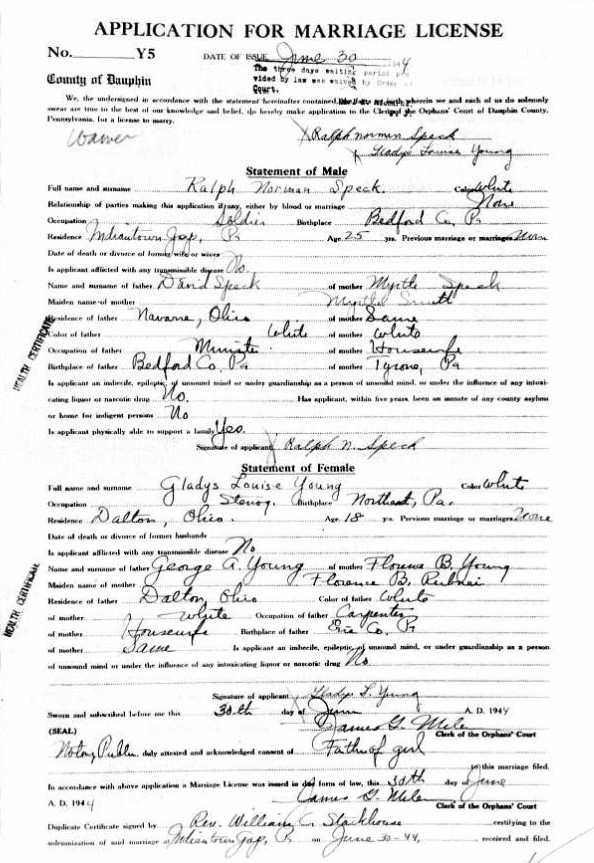 APPLICATION FOR MARRIAGE LICENSE
No. Y5 DATE OF ISSUE June 30 1944
The three days waiting period pro
vided by law was waived by Order of
Court.
County of Dauphin
We, the undersigned in accordance with the statement hereinafter contained, the facts set forth wherein we and each of us do solemnly
swear are true to the best of our knowledge and belief, do hereby make application to the Clerk of the Orphans' Court of Dauphin County,
Pennsylvania, for a license to marry.
Waiver
Ralph Norman Speck
Gladys Louise Young
Statement of Male
Full name and surname Ralph Norman Speck. Color White
Relationship of parties making this application if any, either by blood or marriage None
Occupation Soldier Birthplace Bedford Co, Pa
Residence Indiantown Gap, Pa Age 25 yrs. Previous marriage or marriages None
Date of death or divorce of former wife or wives
Is applicant afflicted with any transmissible disease No.
Name and surname of father David Speck of mother Myrtle Speck
Maiden name of mother Myrtle Smith
Residence of father Navarre, Ohio of mother Same
Color of father White of mother White
Occupation of father Minister of mother Housewife
Birthplace of father Bedford Co, Pa of mother Tyrone, Pa
HEALTH CERTIFICATE
Is applicant an imbecile, epileptic, of unsound mind or under guardianship as a person of unsound mind, or under the influence of any intoxi-
cating liquor or narcotic drug No. Has applicant, within five years, been an inmate of any county asylum
or home for indigent persons No
Is applicant physically able to support a family Yes.
Signature of applicant Ralph N. Speck
Statement of Female
Full name and surname Gladys Louise Young Color White
Occupation Stenog. Birthplace Northeast, Pa.
Residence Dalton, Ohio. Age 18 yrs. Previous marriage or marriages None
Date of death or divorce of former husbands
Is applicant afflicted with any transmissible disease No
Name and surname of father George A. Young of mother Florence B. Young
Maiden name of mother Florence B.
Residence of father Dalton, Ohio Color of father White
of mother White Occupation of father Carpenter
of mother Housewife Birthplace of father Erie Co, Pa
of mother Same Is applicant an imbecile, epileptic, of unsound mind, or under guardianship as a person
of unsound mind or under the influence of any intoxicating liquor or narcotic drug No.
HEALTH CERTIFICATE
Signature of applicant Gladys L. Young
Sworn and subscribed before me this 30th day of June A. D. 1944
James G. Miles
(SEAL) Clerk of the Orphans' Court
Notary Public duly attested and acknowledged consent of Father of girl
to this marriage filed.
In accordance with above application a Marriage License was issued in due form of law, this 30th day of June
A. D. 1944 James G. Miles
Clerk of the Orphans' Court
Duplicate Certificate signed by Rev. William C. Stackhouse certifying to the
solemnization of said marriage at Indiantown Gap, Pa on June 30-44, received and filed.